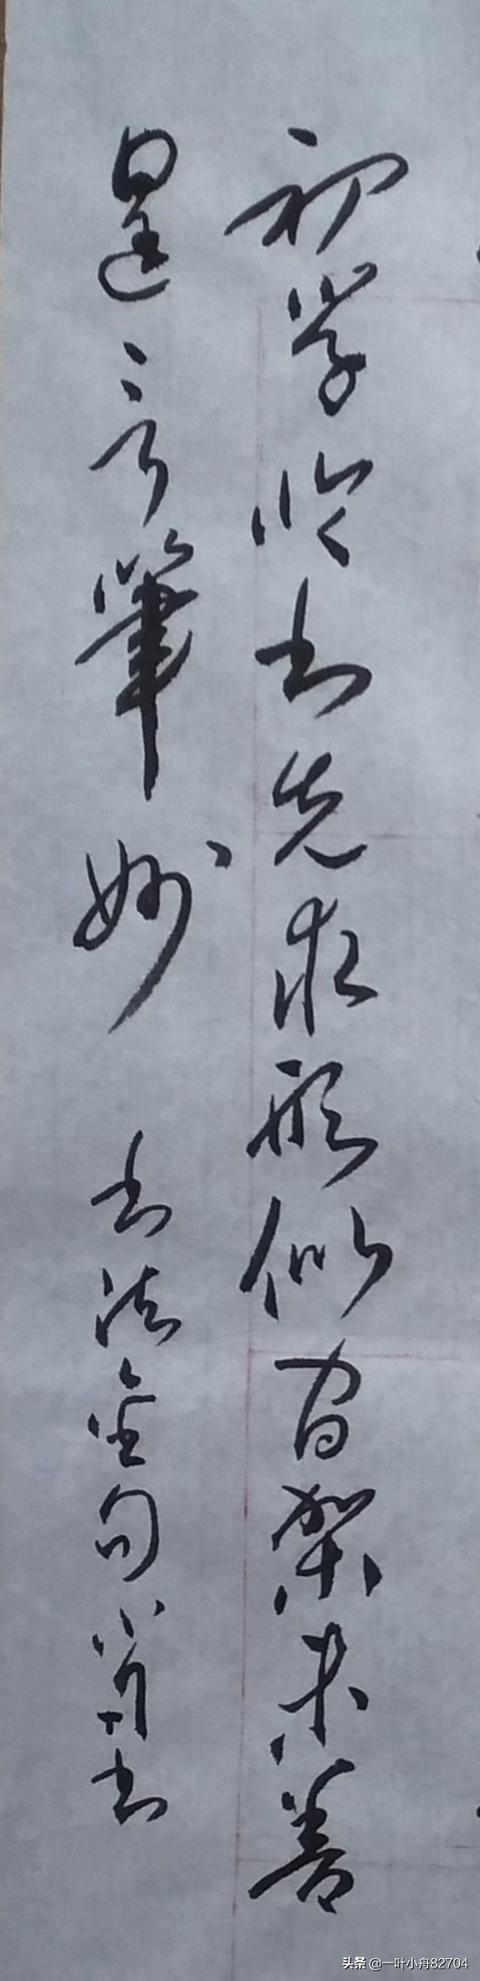 初学临书先求形似间架未善
遑言笔妙 书法金句 小舟书
头条 @一叶小舟82704